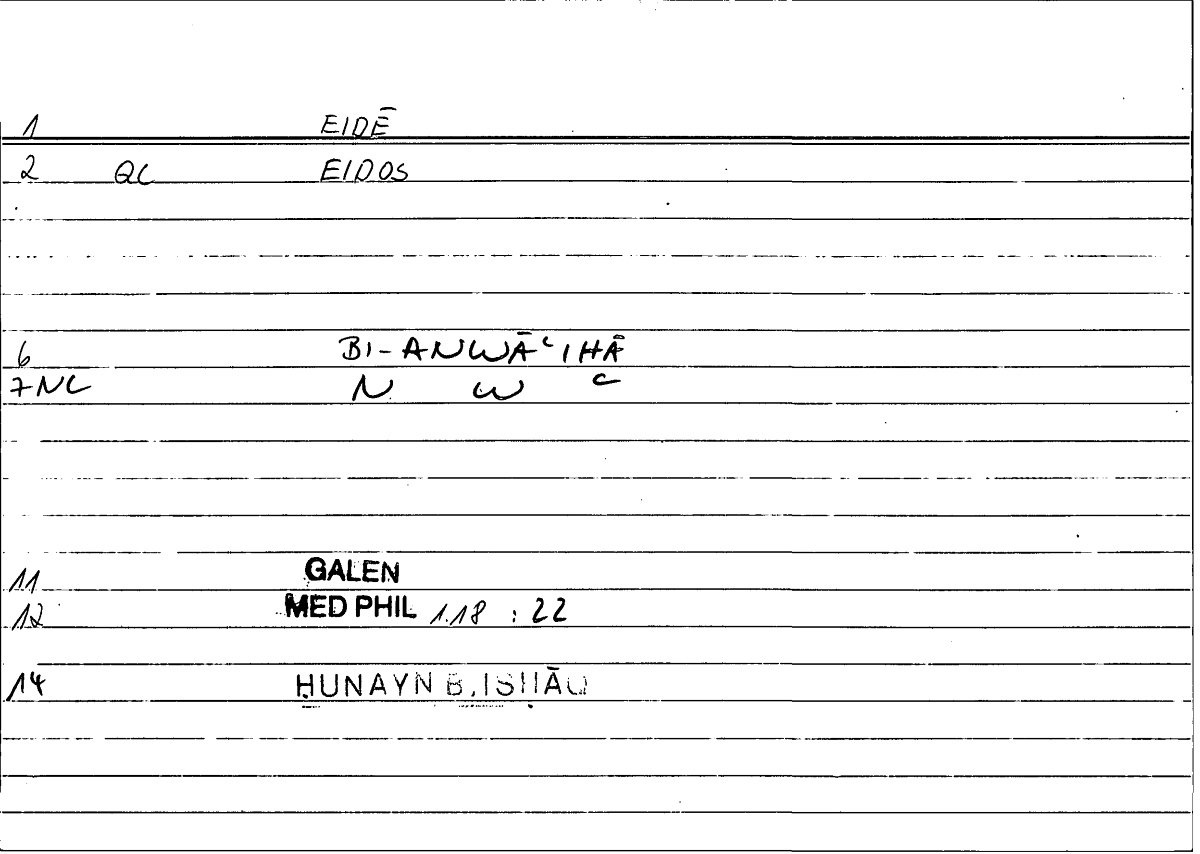 1 EIDĒ
2 QC EIDOS
6 BI-ANWĀʿIHĀ
7NC N W ʿ
11 GALEN
12 MED PHIL 1.18 : 22
14 ḤUNAYN B. ISḤĀQ